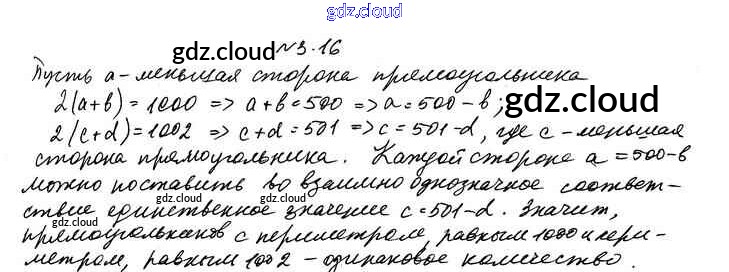 gdz.cloud
gdz.cloud №3.16
Пусть a-меньшая сторона прямоугольника
2(a+b)=1000 => a+b=500 => a=500-b; gdz.cloud
2(c+d)=1002 => c+d=501 => c=501-d, где c-меньшая
сторона прямоугольника. Каждой стороне a=500-b
можно поставить во взаимно однозначное соответ-
gdz.cloud gdz.cloud
ствие единственное значение c=501-d. Значит,
gdz.cloud
прямоугольников с периметром, равным 1000 и пери-
метром, равным 1002 - одинаковое количество.